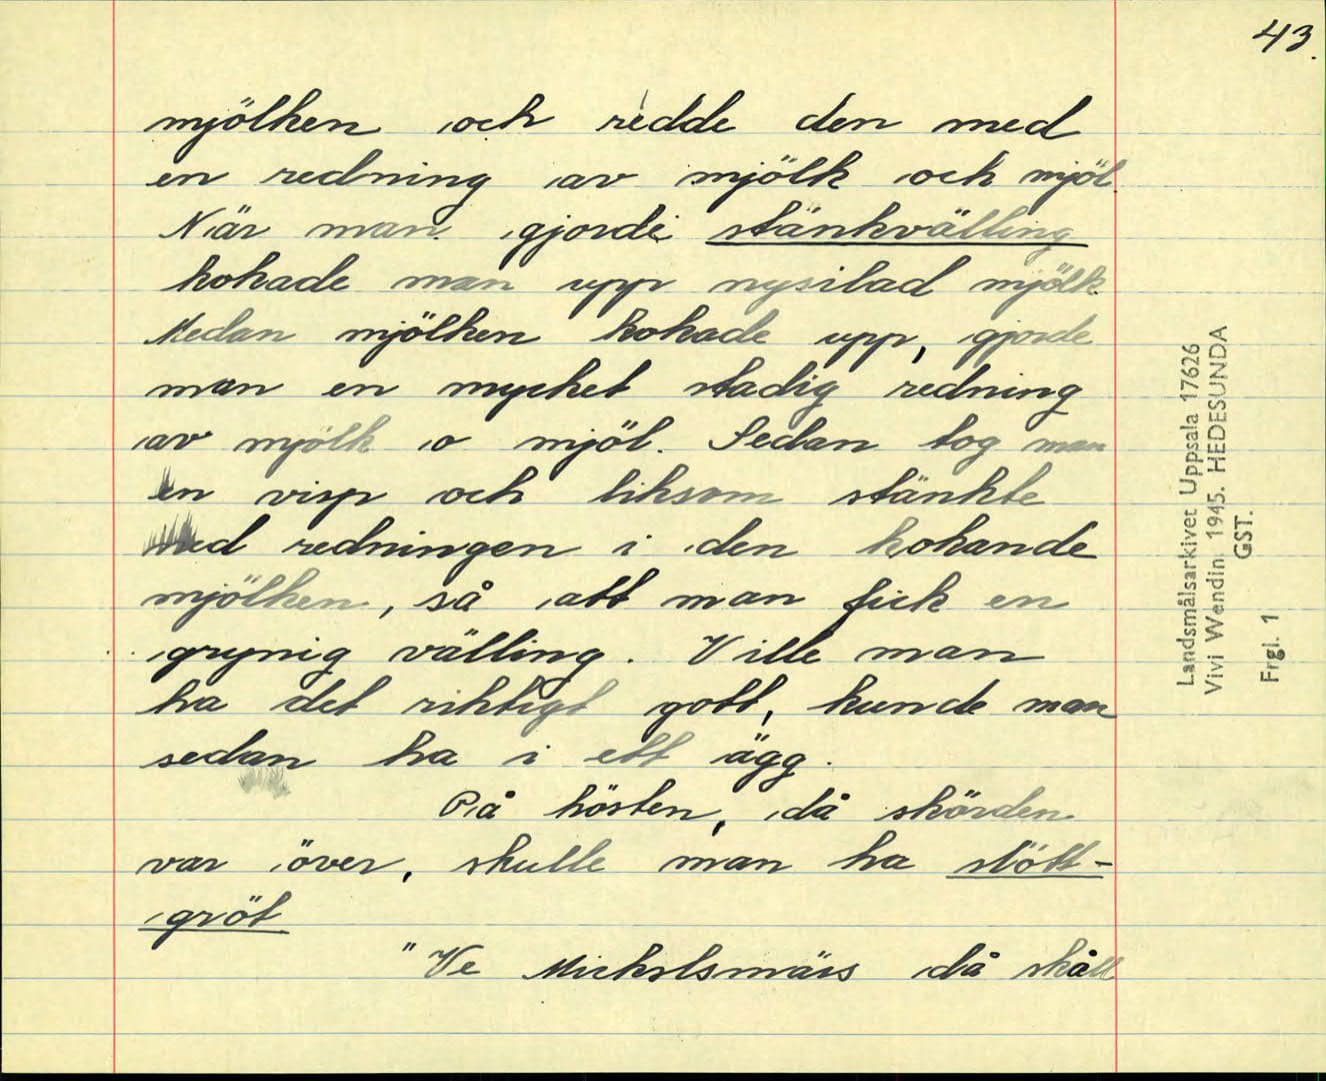 43.
mjölken och redde den med
en redning av mjölk och mjöl.
När man gjorde stänkvälling
kokade man upp nysilad mjölk.
Medan mjölken kokade upp, gjorde
man en mycket stadig redning
av mjölk o mjöl. Sedan tog man
en visp och liksom stänkte
med redningen i den kokande
mjölken, så att man fick en
grynig välling. Ville man
ha det riktigt gott, kunde man
sedan ha i ett ägg.
På hösten, då skörden
var över, skulle man ha slött-
gröt
"Ve Mickelsmäss då skåll
Landsmålsarkivet Uppsala 17626
Vivi Wendin. 1945. HEDESUNDA
GST.
Frgl. 1